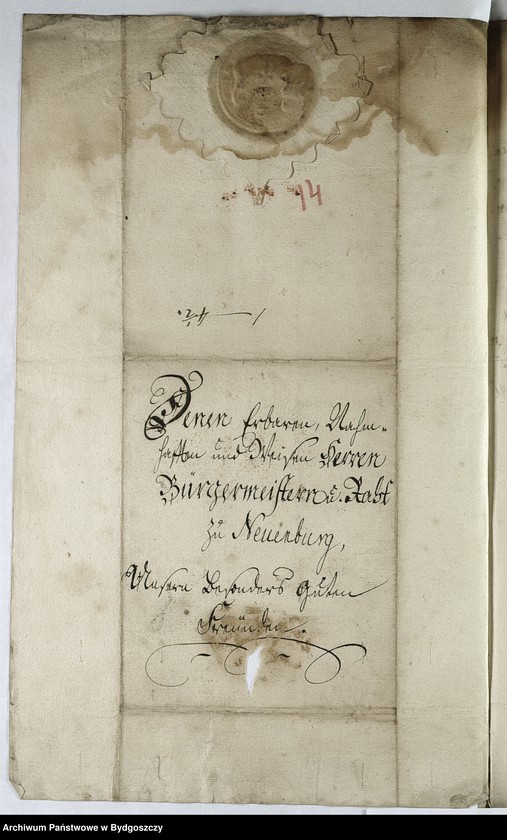 14
1 — 4½.
Denen Erbaren, Nahm-
hafften und Weisen Herren
Bürgermeistern u. Raht
zu Neuenburg,
Unsern besonders guten
Freünden.
Archiwum Państwowe w Bydgoszczy